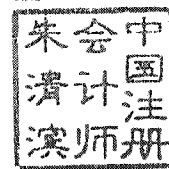 中国注册
会计师
朱清滨